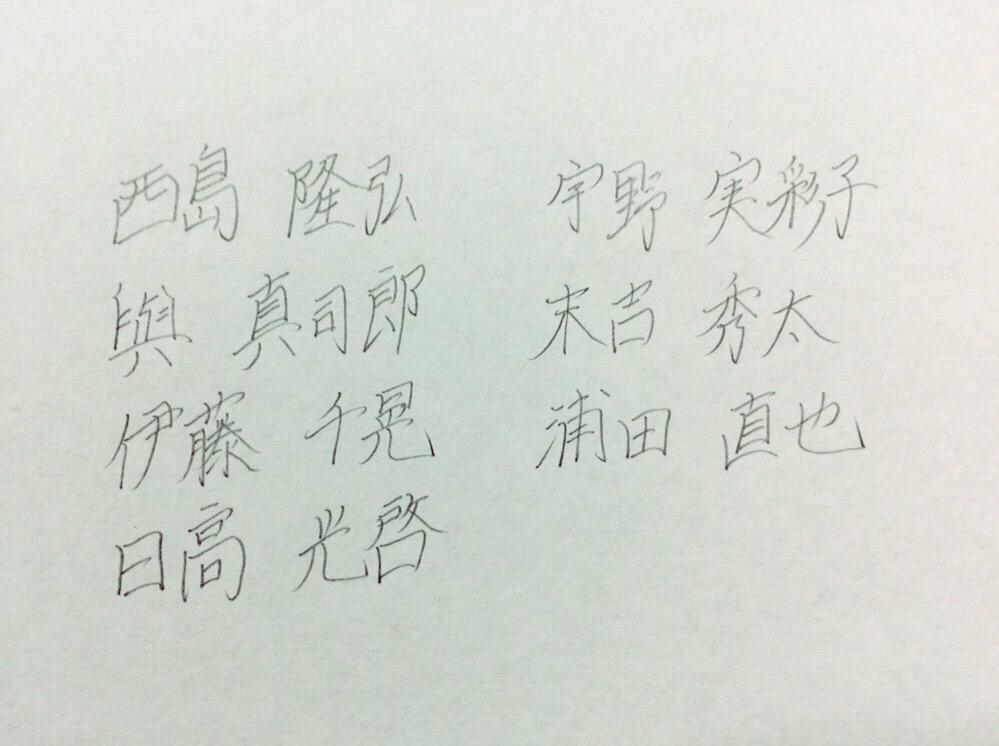 西島 隆弘 宇野 実彩子
與 真司郎 末吉 秀太
伊藤 千晃 浦田 直也
日高 光啓